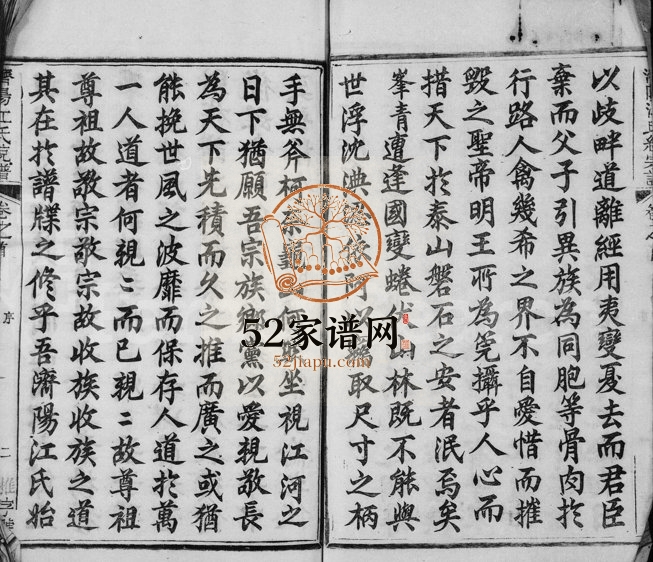 以歧畔道離經用夷變夏去而君臣
棄而父子引異族為同胞等骨肉於
行路人禽幾希之界不自愛惜而摧
毀之聖帝明王所為筦攝乎人心而
措天下於泰山磐石之安者泯焉矣
峯青遭逢國變蜷伏山林既不能與
世浮沈淟依阿以取尺寸之柄
手無斧柯奈何坐視江河之
日下猶願吾宗族鄉黨以愛親敬長
為天下先積而久之推而廣之或猶
能挽世風之波靡而保存人道於萬
一人道者何親〻而已親〻故尊祖
尊祖故敬宗敬宗故收族收族之道
其在於譜牒之修乎吾濟陽江氏始
濟陽江氏統譜
卷之首
序
二
52家谱网
52jiapu.com